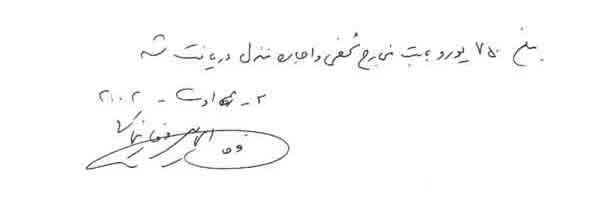 مبلغ ۷۵۰ یورو بابت مخارج شخصی و اجاره منزل دریافت شد
۲ - اوت - ۲۰۰۲